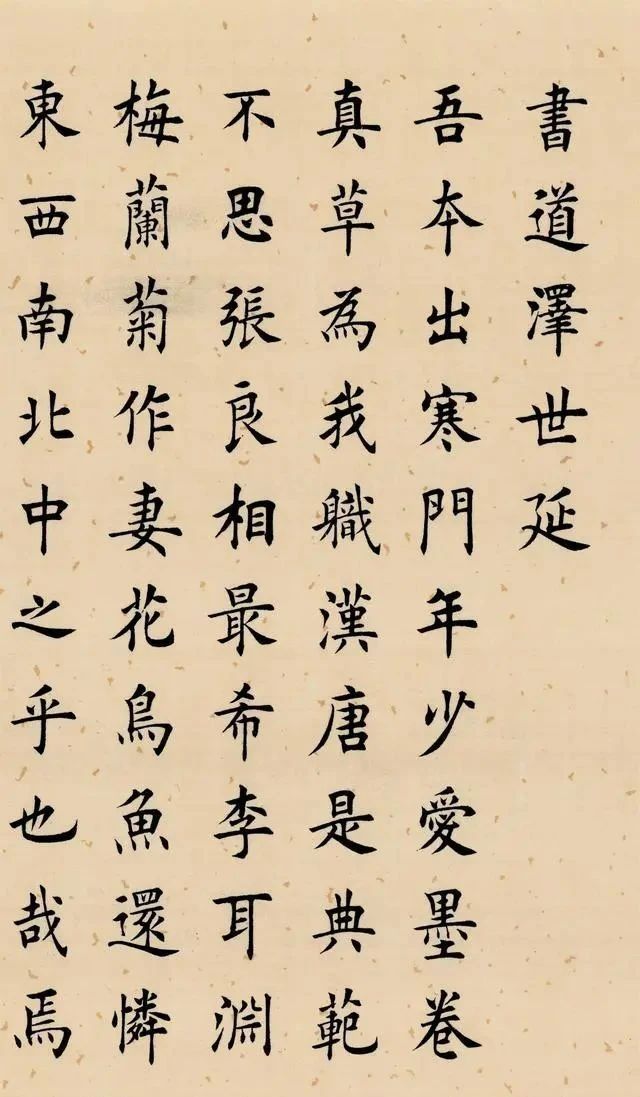 書道澤世延
吾本出寒門年少愛墨卷
真草為我職漢唐是典範
不思張良相最希李耳淵
梅蘭菊作妻花鳥魚還憐
東西南北中之乎也哉焉